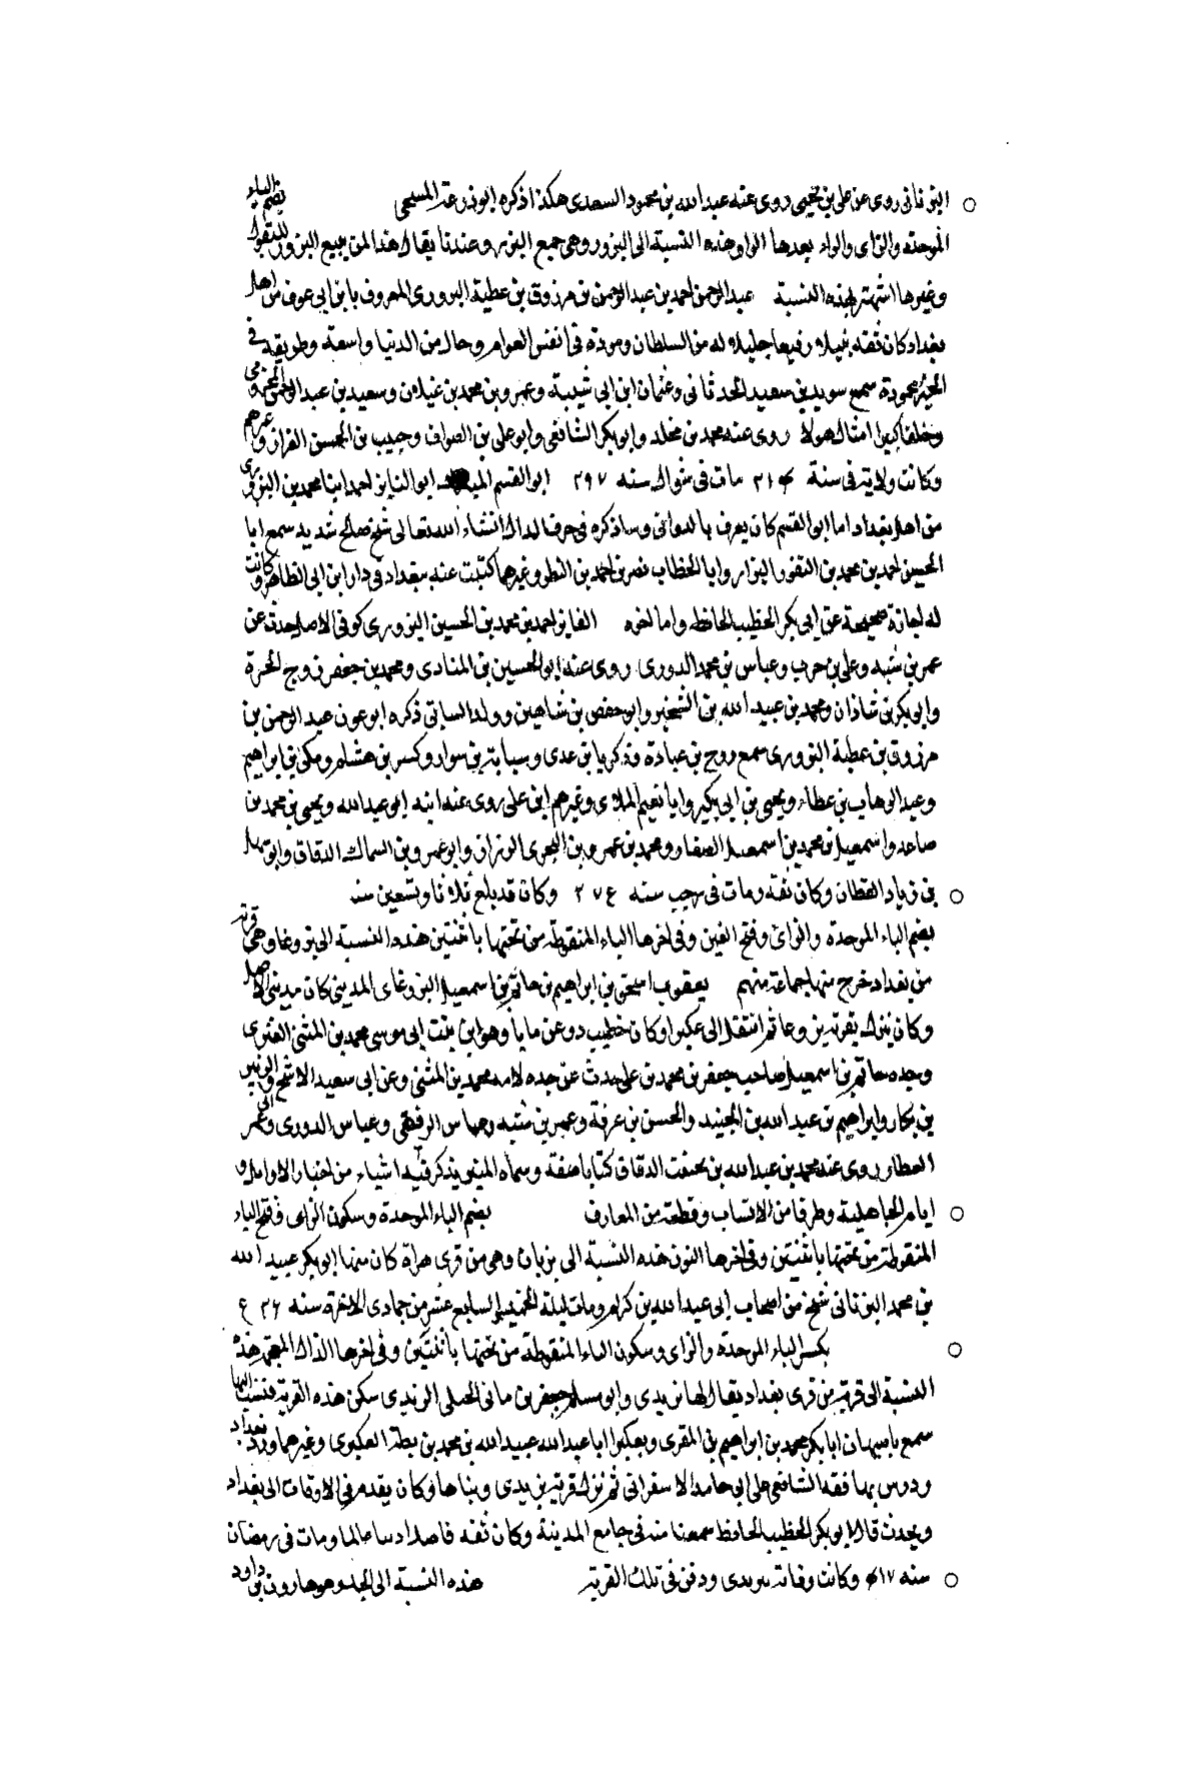 البزنانى روى عن على بن يحيى روى عنه عبدالله بن محمود السعدى هكذا ذكره ابوذرعة المسيحى بضم الباء
الموحدة والزاى والواو بعدها الراء هذه النسبة الى البزور وهى جمع البزر وعندنا يقال هذا لمن يبيع البزور للبقول
وغيرها اشتهر بهذه النسبة عبدالرحمن احمد بن عبدالرحمن بن مرزوق بن عطية البزورى المعروف بابن ابى عوف من اهل
بغداد كان ثقة نبيلا رفيعا جليلا له من السلطان ومودة فى انفس العوام وحال من الدنيا واسعة وطريقة فى
الخير محمودة سمع سويد بن سعيد الحدثانى وعثمان ابن ابى شيبة وعمرو بن محمد بن غيلان وسعيد بن عبدالرحمن المخزومى
وخلقا كبيرا امثال هولا روى عنه محمد بن مخلد وابوبكر الشافعى وابوعلى بن الصواف وحبيب بن الحسن القزاز وغيرهم
وكانت ولادته فى سنة ٢١٤ مات فى شوال سنه ٢٩٧ ابوالقسم ابوالنايز احمد ابنا محمد بن البزورى
من اهل بغداد اما ابوالقسم كان يعرف بالدوانى وساذكره فى حرف الدال انشاء الله تعالى شيخ صالح شديد سمع ابا
الحسين احمد بن محمد بن النقور البزاز وابا الخطاب نصر بن احمد بن البطر وغيرهما كتبت عنه ببغداد فى دار ابن ابى الطاهر وكانت
له اجازة صحيحة عن ابى بكر الخطيب الحافظ واما اخوه الفايز احمد بن محمد بن الحسين البزورى كوفى الاصل حدث عن
عمر بن شبه وعلى بن حرب وعباس بن محمد الدورى روى عنه ابوالحسين بن المنادى ومحمد بن جعفر زوج الحرة
وابوبكر بن شاذان ومحمد بن عبيدالله بن الشخير وابوحفص بن شاهين وولد الساتى ذكره ابوعون عبدالرحمن بن
مرزوق بن عطية البزورى سمع روح بن عبادة وزكريا بن عدى وسبابة بن سوار وكسر بن هشام ومكى بن ابراهيم
وعبدالوهاب بن عطاء ويحيى بن ابى بكير وابا نعيم الملائى وغيرهم ابن على روى عنه ابنه ابوعبدالله ويحيى بن محمد بن
صاعد واسمعيل بن محمد بن اسمعيل الصفار ومحمد بن عمرو بن البحرى الوزان وابوعمرو بن السماك الدقاق وابوسهل
بن زياد القطان وكان ثقة ومات فى رجب سنه ٢٧٤ وكان قد بلغ ثلاثا وتسعين سنه
بضم الباء الموحدة والزاى وفتح الغين وفى اخرها الياء المنقوطة من تحتها باثنتين هذه النسبة الى بزوغا وهى قرية
من بغداد خرج منها جماعة منهم يعقوب اسحق بن ابراهيم بن حاتم بن اسمعيل البزوغاى المدينى كان مدينى الاصل
وكان ينزل بقرية بزوغا ثم انتقل الى عكبرا وكان خطيب دوعن مايا وهو ابن بنت ابى موسى محمد بن المثنى العنزى
وجده حاتم بن اسمعيل صاحب جعفر بن محمد بن على حدث عن جده لامه محمد بن المثنى وعن ابى سعيد الاشج والزبير
بن بكار وابراهيم بن عبدالله بن الجنيد والحسن بن عرفة وعمر بن شبه وعباس الدورى وعمر
العطار روى عنه محمد بن عبدالله بن بخيت الدقاق كتابا صنفه وسماه المينى يذكر فيه اشياء من اخبار الاوايل و
ايام الجاهلية وطرفا من الانساب وقطعة من المعارف بضم الباء الموحدة وسكون الزاى وفتح الياء
المنقوطة من تحتها باثنتين وفى اخرها النون هذه النسبة الى بزيان وهى من قرى هراة كان منها ابوبكر عبيدالله
بن محمد البزنانى شيخ من اصحاب ابى عبدالله بن كرام ومات ليلة الخميس السابع عشر من جمادى الاخرة سنه ٤٣٦
بكسر الباء الموحدة والزاى وسكون الياء المنقوطة من تحتها باثنتين وفى اخرها الذال المعجمة هذه
النسبة الى قرية من قرى بغداد يقال لها بزيدى وابومسلم جعفر بن مانى الجيلى البزيدى سكن هذه القرية فنسب اليها
سمع باصبهان ابابكر محمد بن ابراهيم بن المقرى وبعكبرا ابا عبدالله عبيدالله بن محمد بن بطة العكبرى وغيرهما ورد بغداد
ودرس بها فقه الشافعى على ابى حامد الاسفراينى ثم نزل قرية بزيدى وبناها وكان يقدم فى الاوقات الى بغداد
ويحدث قال ابوبكر الخطيب الحافظ سمعنا منه فى جامع المدينة وكان ثقة فاضلا دينا عالما ومات فى رمضان
سنه ٤١٧ وكانت وفاته ببزيدى ودفن فى تلك القرية هذه النسبة الى الجد وهو هارون بن داود